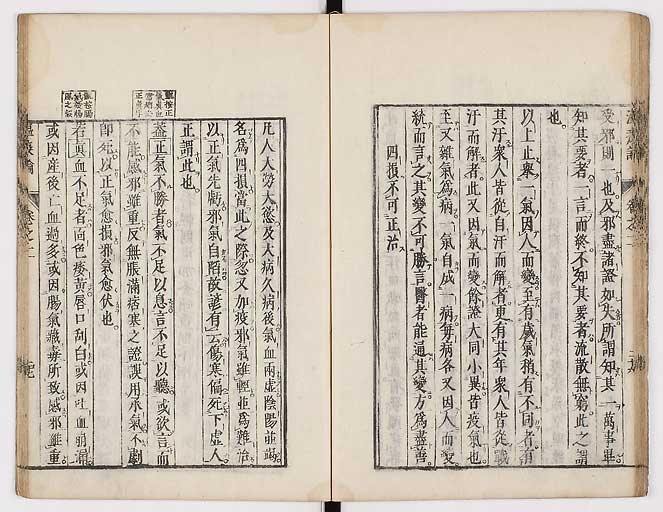 受邪則一也及邪盡諸證如失所謂知其一萬事畢
知其要者一言而終不知其要者流散無窮此之謂
也
以上止衆人一氣因人而變至有歲氣稍有不同者有
其汗衆人皆從自汗而解者更有其年衆人皆從戰
汗而解者此又因氣而變餘證大同小異皆疫氣也
至又雜氣爲病一氣自成一病每病各又因人而變
統而言之其變不可勝言醫者能通其變方爲盡善
四損不可正治
凡人大勞大慾及大病久病後氣血兩虛陰陽並竭
名爲四損當此之際忽又加疫邪氣雖輕並爲難治
以正氣先虧邪氣自陷故諺有云傷寒偏死下虛人
正謂此也
蓋正氣不勝者氣不足以息言不足以聽或欲言而
不能感邪雖重反無脹滿痞塞之證誤用承氣不劇
即死以正氣愈損邪氣愈伏也
若真血不足者面色痿黄唇口刮白或因吐血崩漏
或因産後亡血過多或因腸氣臟毒所致感邪雖重
溫疫論
卷之二